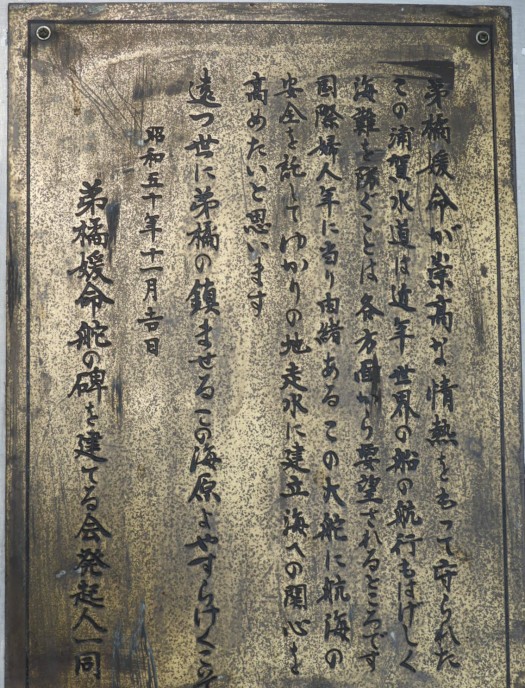 弟橘媛命が崇高な情熱をもって守られた
この浦賀水道は近年世界の船の航行もはげしく
海難を防ぐことは各方面から要望されるところです
国際婦人年に当り由緒あるこの大舵に航海の
安全を託してゆかりの地走水に建立海への関心を
高めたいと思います
遠つ世に弟橘の鎮ませるこの海原よやすらけくこそ
昭和五十年十一月吉日
弟橘媛命舵の碑を建てる会発起人一同